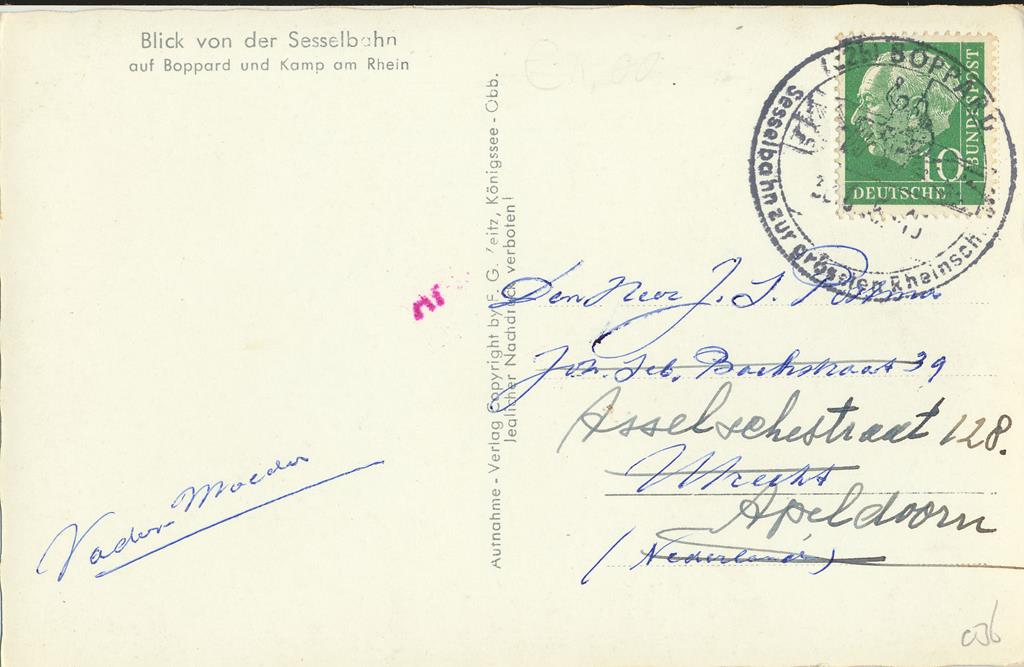 Blick von der Sesselbahn
auf Boppard und Kamp am Rhein
Aufnahme - Verlag Copyright by F. G. Zeitz, Königssee - Obb.
Jeglicher Nachdruck verboten!
(22b) BOPPARD
Sesselbahn zur grössten Rheinsch
10
DEUTSCHE
BUNDESPOST
Den Heer J. S.
Joh. Seb. Bachstraat 39
Asselschestraat 128.
Utrecht
Apeldoorn
(Nederland)
Vader-Moeder